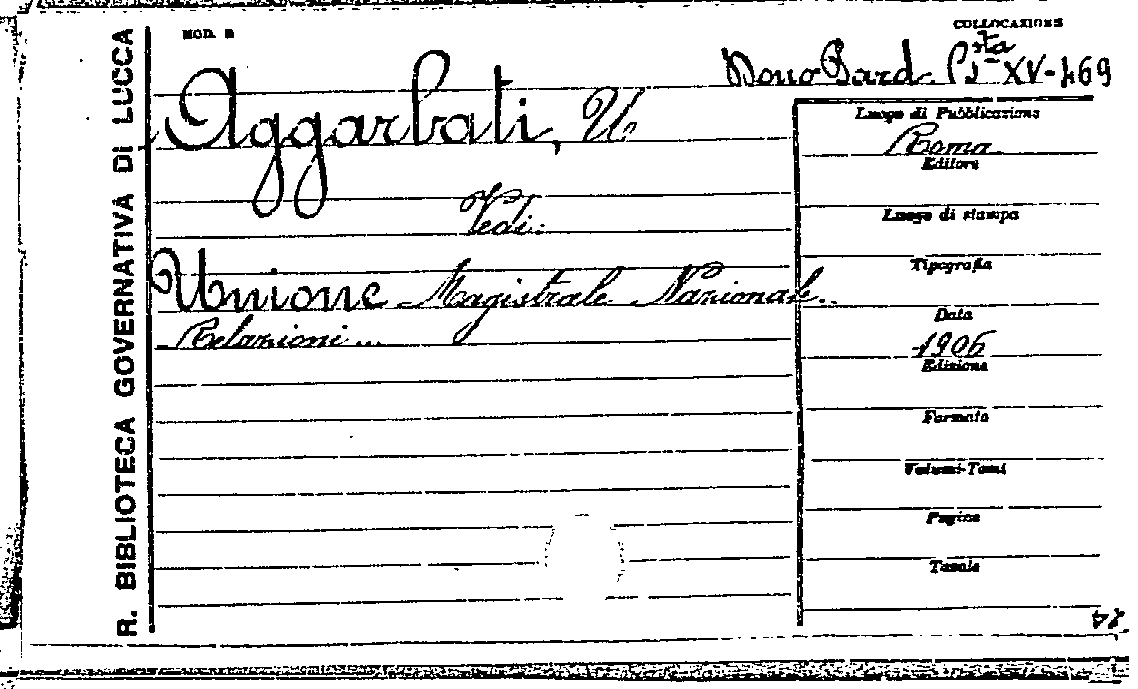 R. BIBLIOTECA GOVERNATIVA DI LUCCA
MOD. B
COLLOCAZIONE
Dono Bard. Bsta XV-469
Aggarbati, U
Vedi:
Unione Magistrale Nazionale.
Relazioni...
Luogo di Pubblicazione
Roma
Editore
Luogo di stampa
Tipografia
Data
1906
Edizione
Formato
Volumi-Tomi
Pagine
Tavole